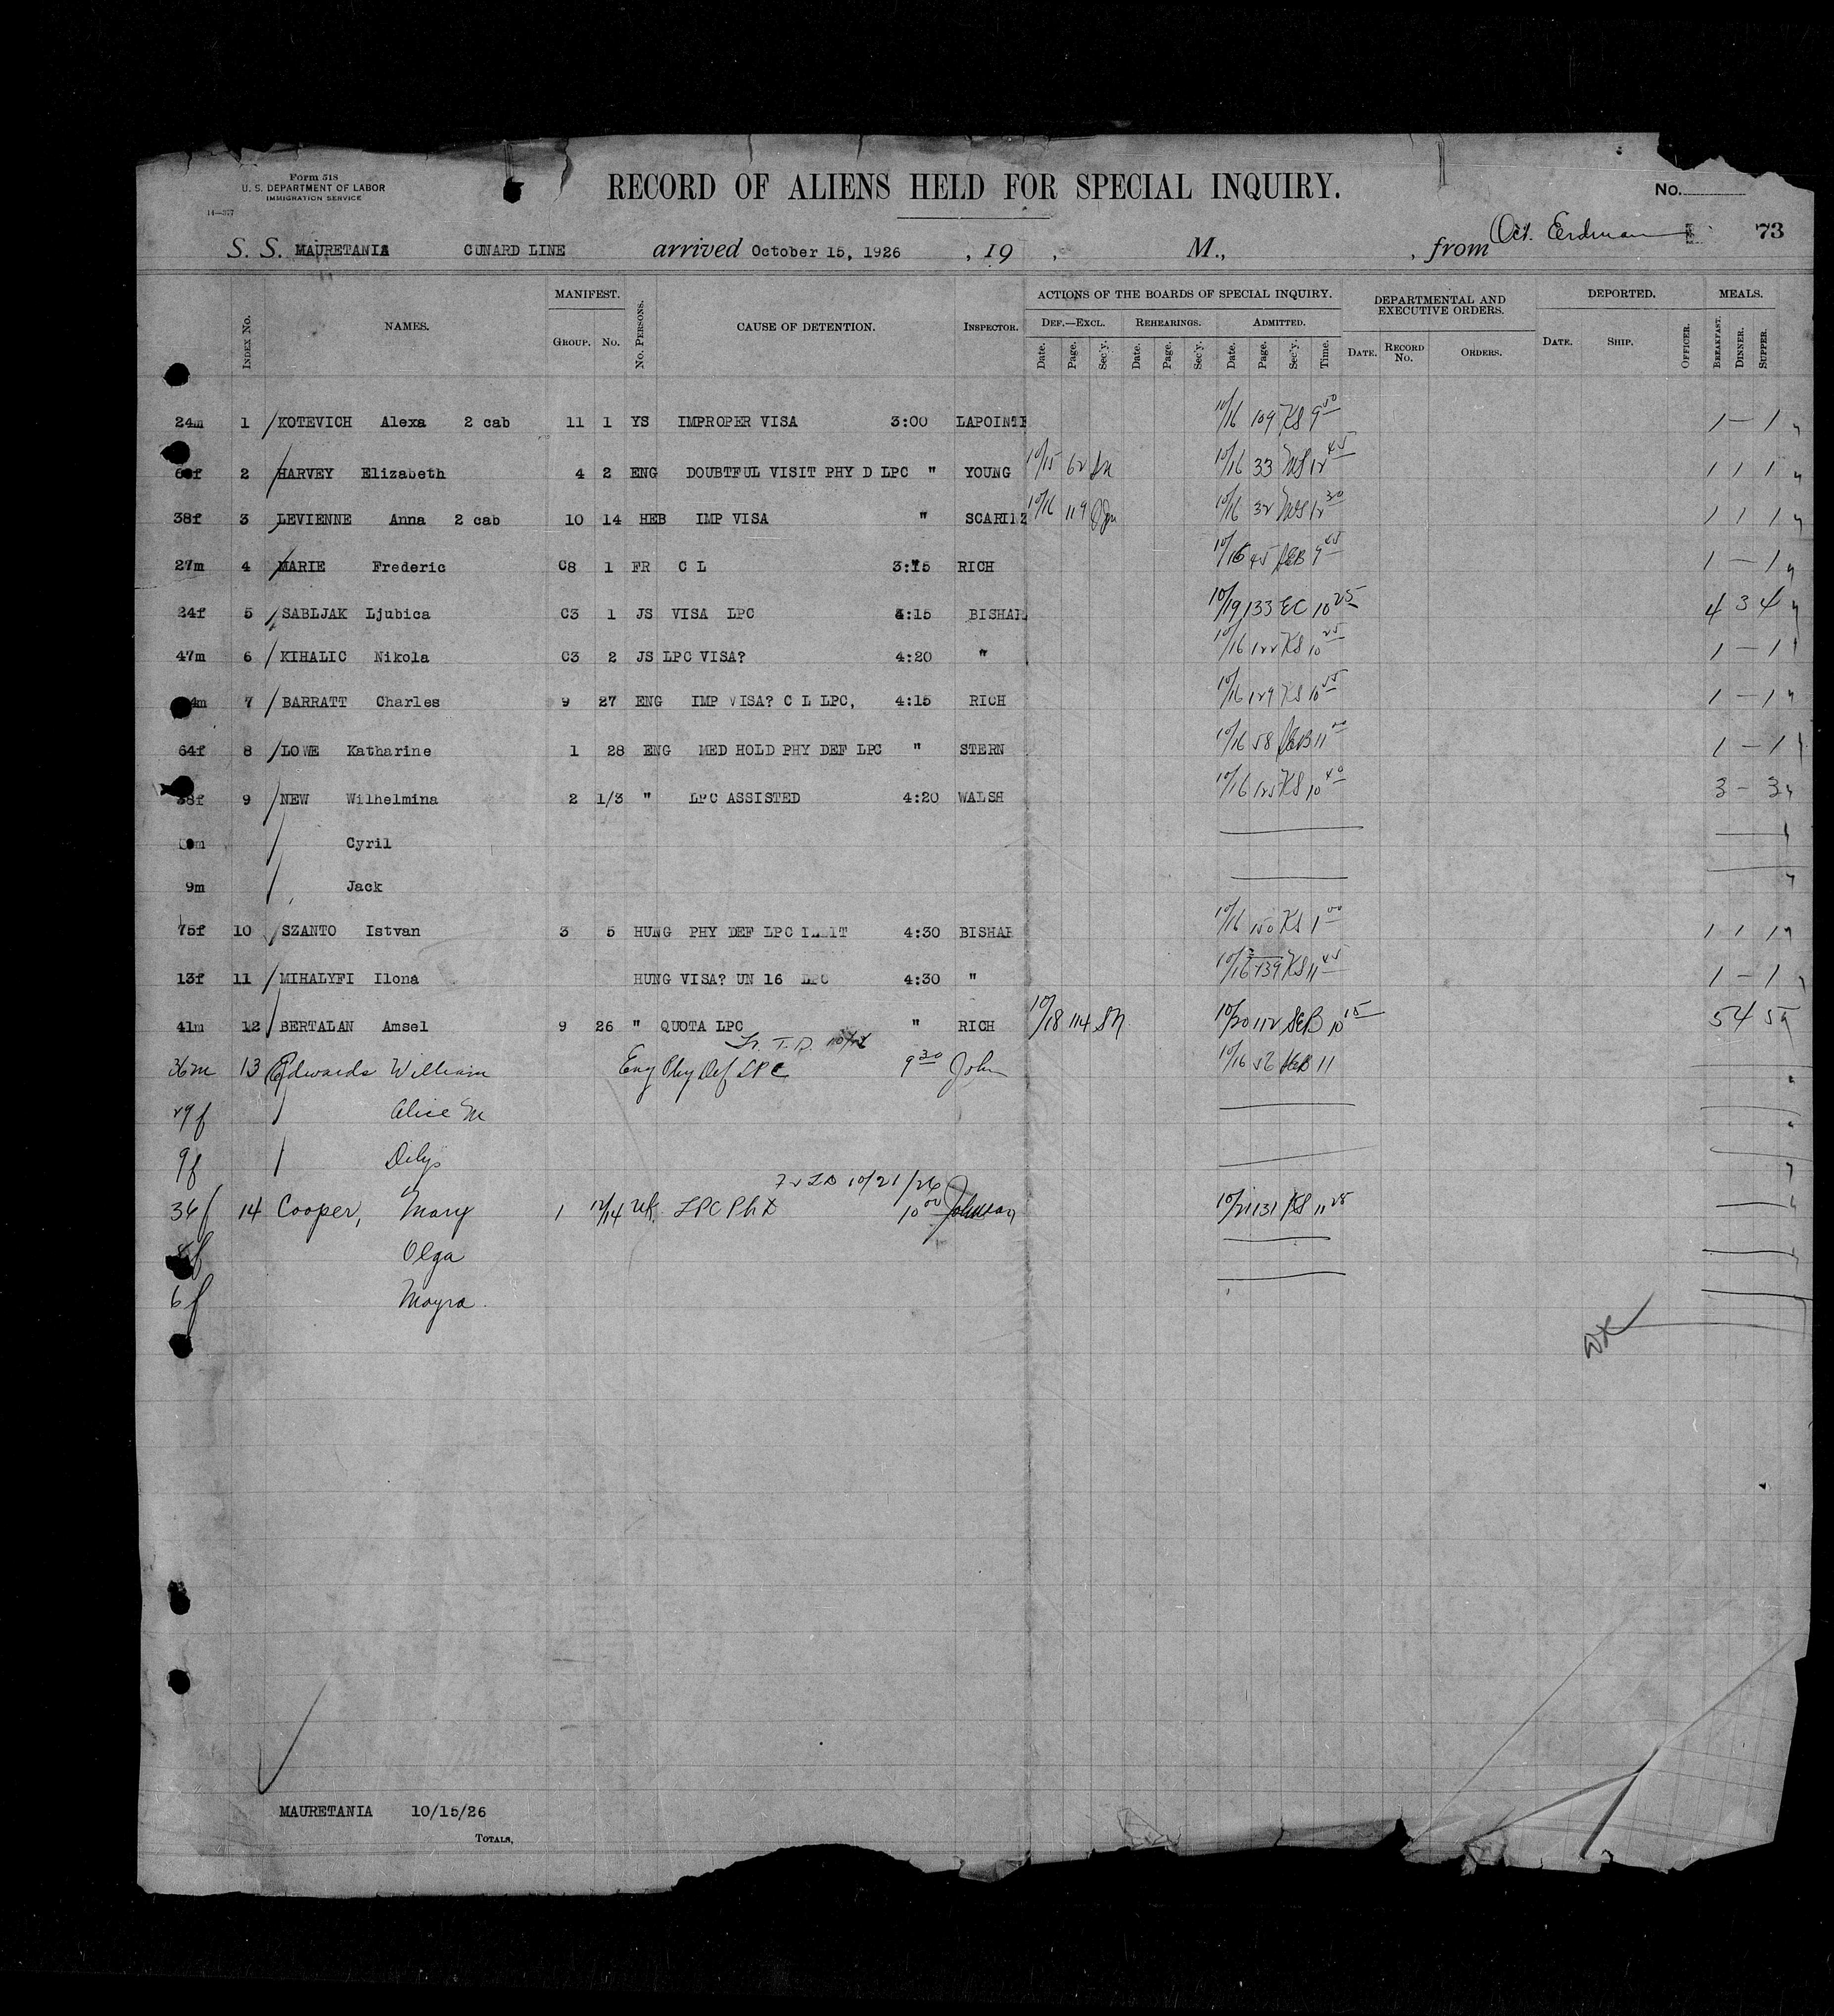 Form 518
U. S. DEPARTMENT OF LABOR
IMMIGRATION SERVICE
14—377
RECORD OF ALIENS HELD FOR SPECIAL INQUIRY.
No.
S. S. MAURETANIA CUNARD LINE arrived October 15, 1926 , 19 , M., , from Oct. Erdman 73
MANIFEST. ACTIONS OF THE BOARDS OF SPECIAL INQUIRY. DEPARTMENTAL AND EXECUTIVE ORDERS. DEPORTED. MEALS.
Index No. NAMES. Group. No. No. Persons. CAUSE OF DETENTION. Inspector. Def.—Excl. Rehearings. Admitted.
Date. Page. Sec'y. Date. Page. Sec'y. Date. Page. Sec'y. Time. Date. Record No. Orders. Date. Ship. Officer. Breakfast. Dinner. Supper.
24m 1 KOTEVICH Alexa 2 cab 11 1 YS IMPROPER VISA 3:00 LAPOINTE 10/16 109 KS 9 00 1 — 1
f 2 HARVEY Elizabeth 4 2 ENG DOUBTFUL VISIT PHY D LPC " YOUNG 10/15 62 10/16 33 MS 12 45 1 1 1
38f 3 LEVIENNE Anna 2 cab 10 14 HEB IMP VISA " 10/16 119 10/16 32 MS 12 30 1 1 1
27m 4 MARIE Frederic C8 1 FR C L 3:15 RICH 10/16 45 SEB 9 45 1 — 1
24f 5 SABLJAK Ljubica C3 1 JS VISA LPC 4:15 BISHAR 10/19 133 EC 10 25 4 3 4
47m 6 KIHALIC Nikola C3 2 JS LPC VISA? 4:20 " 10/16 122 KS 10 25 1 — 1
4m 7 BARRATT Charles 9 27 ENG IMP VISA? C L LPC, 4:15 RICH 10/16 129 KS 10 55 1 — 1
64f 8 LOWE Katharine 1 28 ENG MED HOLD PHY DEF LPC " STERN 10/16 58 SEB 11 1 — 1
38f 9 NEW Wilhelmina 2 1/3 " LPC ASSISTED 4:20 WALSH 10/16 125 KS 10 40 3 — 3
m Cyril
9m Jack
75f 10 SZANTO Istvan 3 5 HUNG PHY DEF LPC 4:30 BISHAR 10/16 150 KS 1 00 1 1 1
13f 11 MIHALYFI Ilona HUNG VISA? UN 16 LPC 4:30 " 10/16 139 KS 11 45 1 — 1
41m 12 BERTALAN Amsel 9 26 " QUOTA LPC " RICH 10/18 114 SN 10/20 112 SEB 10 15 5 4 5
36m 13 Edwards William Eng Phy Def LPC 9 30 John 10/16 56 SEB 11
29f Alice M
9f Dilys
10/21/26
36f 14 Cooper, Mary 1 12/14 LPC Ph D 10 00 Johnson 10/21 131 KS 11 25
f Olga
6f Moyra
OK
MAURETANIA 10/15/26
Totals,